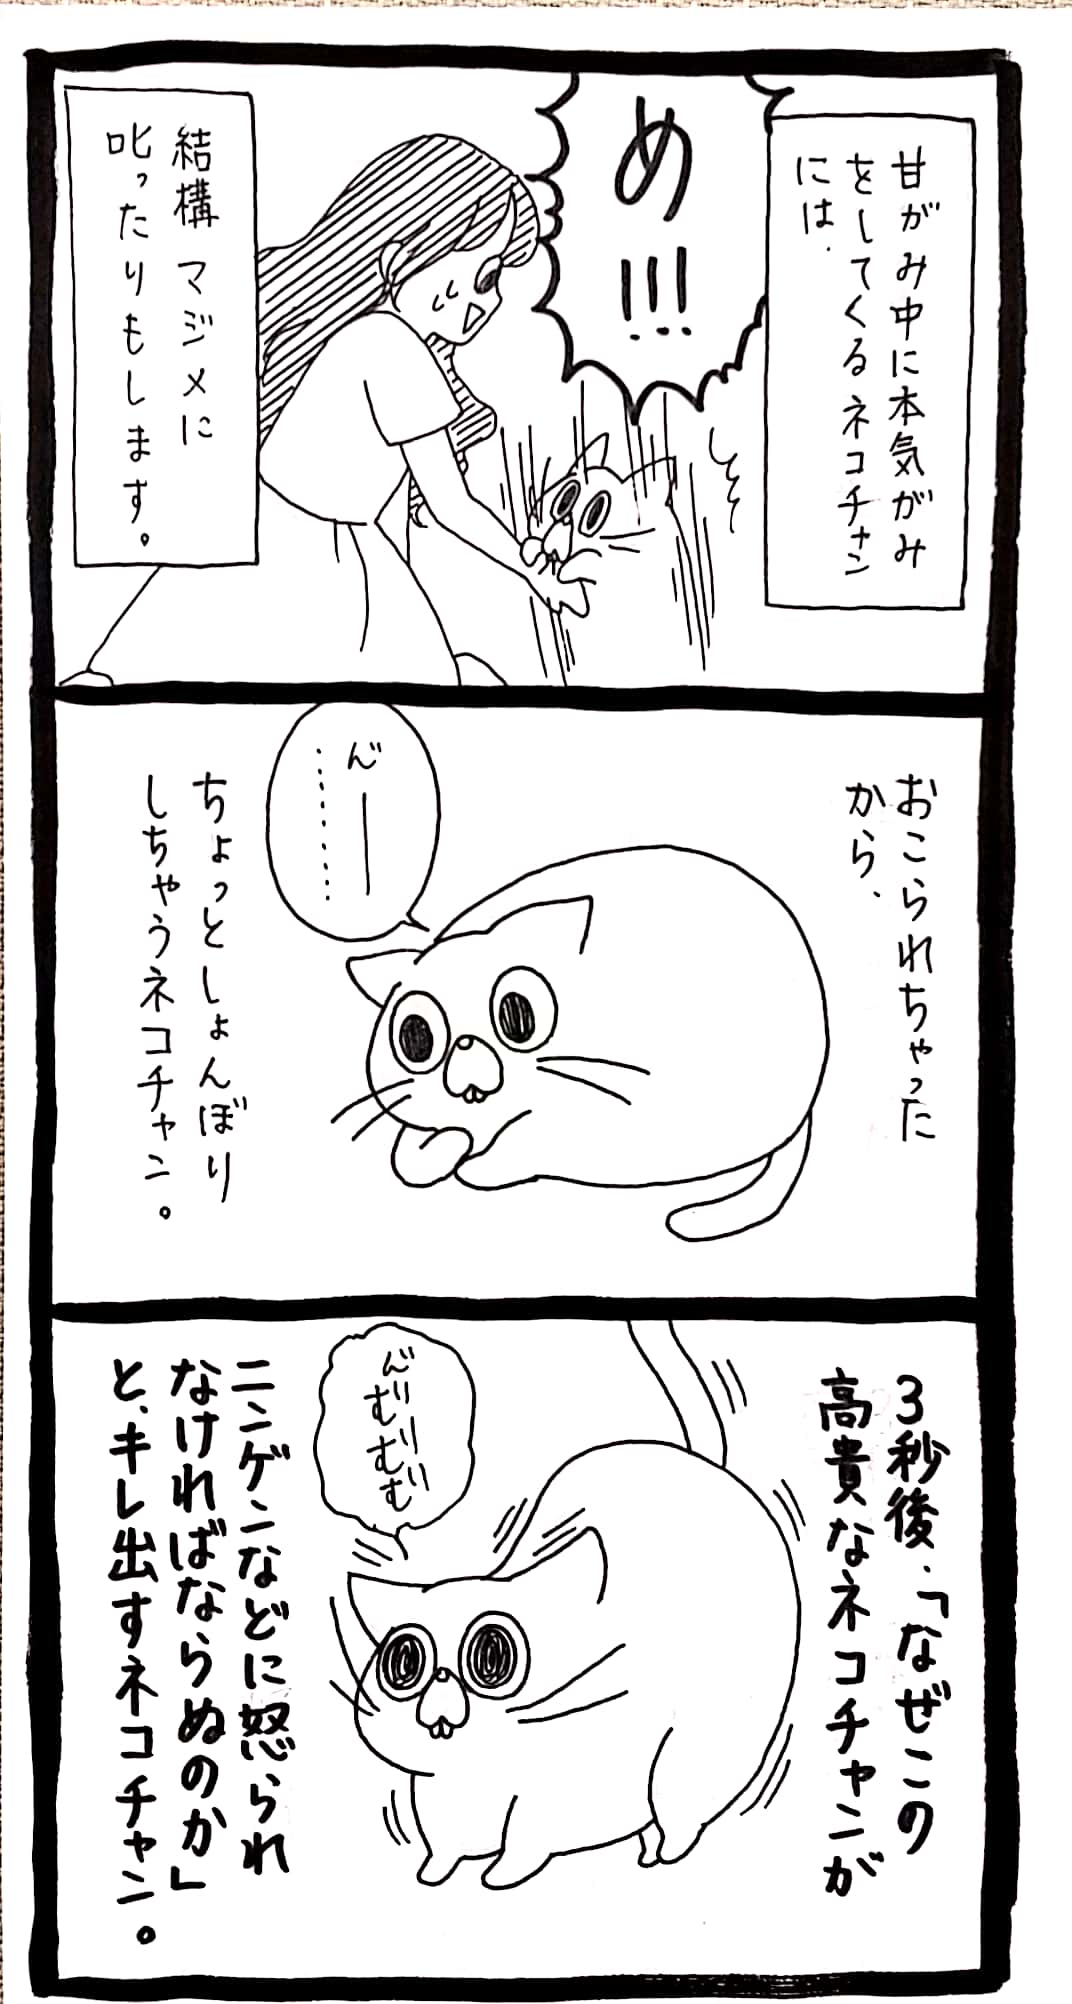 甘がみ中に本気がみ
をしてくるネコチャン
には、
め!!!
結構マジメに
叱ったりもします。
おこられちゃった
から、
ん゛ー
………
ちょっとしょんぼり
しちゃうネコチャン。
3秒後、「なぜこの
高貴なネコチャンが
ん゛
む゛り
む゛む゛
ニンゲンなどに怒られ
なければならぬのか」
と、キレ出すネコチャン。